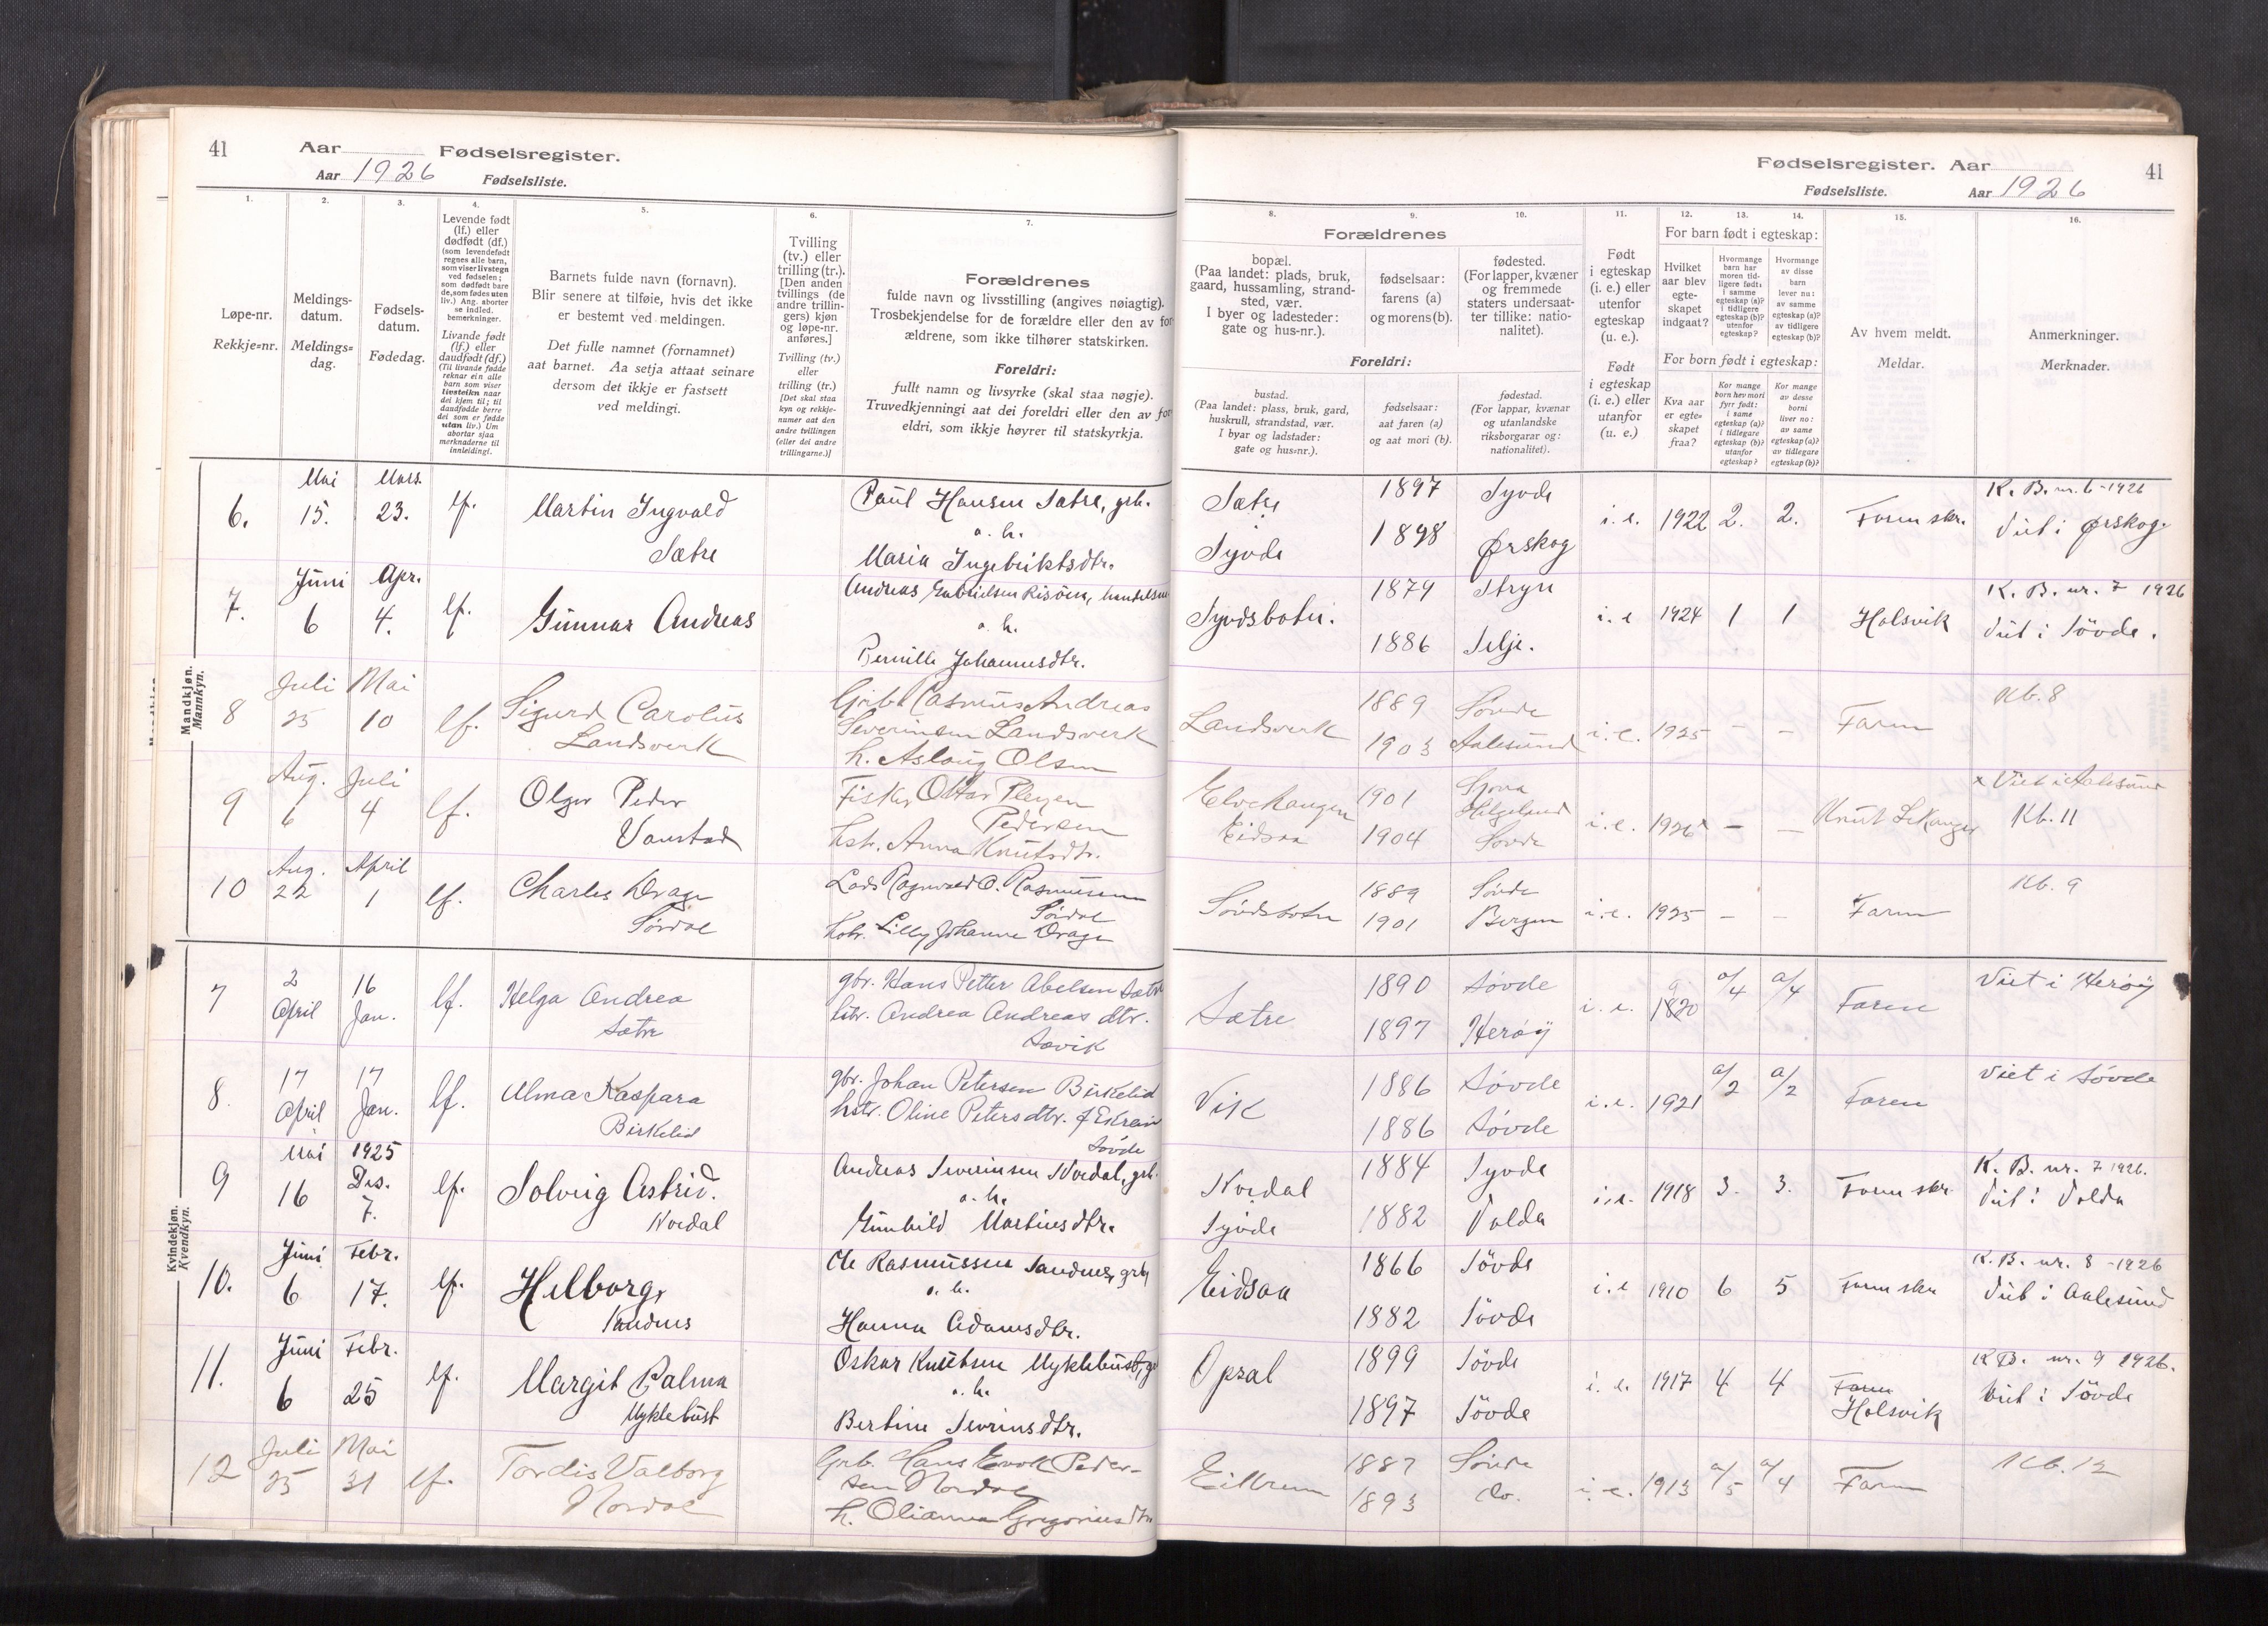 41
Aar
Fødselsregister.
Aar 1926 Fødselsliste.
1.
2.
3.
4.
5.
6.
7.
Løpe-nr.
Rekkje=nr.
Meldings-
datum.
Meldings=
dag.
Fødsels-
datum.
Fødedag.
Levende født
(lf.) eller
dødfødt (df.)
(som levendefødt
regnes alle barn,
som viser livstegn
ved fødselen;
som dødfødt bare
de, som fødes uten
liv.) Ang. aborter
se indled.
bemerkninger.
Livande født
(lf.) eller
daudfødt (df.)
(Til livande fødde
reknar ein alle
barn som viser
livsteikn naar
dei kjem til; til
daudfødde berre
dei som er fødde
utan liv.) Um
abortar sjaa
merknaderne til
innleidingi.
Barnets fulde navn (fornavn).
Blir senere at tilføie, hvis det ikke
er bestemt ved meldingen.
Det fulle namnet (fornamnet)
aat barnet. Aa setja attaat seinare
dersom det ikkje er fastsett
ved meldingi.
Tvilling
(tv.) eller
trilling (tr.).
[Den anden
tvillings (de
andre trillin-
gers) kjøn
og løpe-nr.
anføres.]
Tvilling (tv.)
eller
trilling (tr.)
[Det skal staa
kyn og rekkje-
numer aat den
andre tvillingen
(eller dei andre
trillingarne.)]
Forældrenes
fulde navn og livsstilling (angives nøiagtig).
Trosbekjendelse for de forældre eller den av for
ældrene, som ikke tilhører statskirken.
Foreldri:
fullt namn og livsyrke (skal staa nøgje).
Truvedkjenningi aat dei foreldri eller den av for
eldri, som ikkje høyrer til statskyrkja.
Mandkjøn.
Mannkyn.
6.
Mai
15.
Mars.
23.
lf.
Martin Ingvald
Sætre
Paul Hansen Sætre, grb.
o. h.
Maria Ingebriktsdtr.
7.
Juni
6
Apr.
4.
lf.
Gunnar Andreas
Andreas Gabrielsen Risøen, handelsm
o. h.
Pernille Johannesdtr.
8
Juli
25
Mai
10
lf.
Sigurd Carolus
Landsverk
Grbr Rasmus Andreas
Severinsen Landsverk
h. Aslaug Olsen
9
Aug.
6
Juli
4
lf.
Olger Peder
Vanstad
Fisker Ottar
Pedersen
hstr. Anna Knutsdtr.
10
Aug.
22
April
1
lf.
Charles Drage
Sørdal
Lods Ragnvald O. Rasmussen
Sørdal
hstr. Lilly Johanne Drage
Kvindekjøn.
Kvendkyn.
7
2
April
16
Jan.
lf.
Helga Andrea
Sætre
gbr. Hans Petter Abelsen Sætre
hstr. Andrea Andreas dtr.
Sævik
8.
17
April
17
Jan.
lf.
Alma Kaspara
Birkelid
gbr. Johan Petersen Birkelid
hstr. Oline Petersdtr. f Ekrein
Søvde
9
Mai
16
1925
Des.
7.
lf.
Solveig Astrid.
Nordal
Andreas Severinsen Nordal, grb.
o. h.
Gunhild Martinsdtr.
10.
Juni
6
Febr.
17.
lf.
Helborg
Sandnes
Ole Rasmussen Sandnes, grb
o. h.
Hanna Adamsdtr.
11.
Juni
6
Febr.
25
lf.
Margit Palma
Myklebust
Oskar Knutsen Myklebust, g
o. h.
Bertine Sevrinsdtr.
12
Juli
25
Mai
31
lf.
Tordis Valborg
Nordal
Grb. Hans Enok Peder-
sen Nordal
h. Olianna Gregoriusdtr
Fødselsregister. Aar
41
Fødselsliste. Aar 1926
8.
9.
10.
11.
12.
13.
14.
15.
16.
Forældrenes
bopæl.
(Paa landet: plads, bruk,
gaard, hussamling, strand-
sted, vær.
I byer og ladesteder:
gate og hus-nr.).
fødselsaar:
farens (a)
og morens (b).
fødested.
(For lapper, kvæner
og fremmede
staters undersaat-
ter tillike: natio-
nalitet).
Foreldri:
bustad.
(Paa landet: plass, bruk, gard,
huskrull, strandstad, vær.
I byar og ladstader:
gate og hus=nr.).
fødselsaar:
aat faren (a)
og aat mori (b).
fødestad.
(For lappar, kvænar
og utanlandske
riksborgarar og:
nationalitet).
Født
i egteskap
(i. e.) eller
utenfor
egteskap
(u. e.).
Født
i egteskap
(i. e.) eller
utanfor
(u. e.)
For barn født i egteskap:
Hvilket
aar blev
egte-
skapet
indgaat?
Hvormange
barn har
moren tid-
ligere født:
i samme
egteskap (a)?
i tidligere
egteskap (b)?
utenfor
egteskap?
Hvormange
av disse
barn
lever nu:
av samme
egteskap (a)?
av tidligere
egteskap (b)?
For born født i egteskap:
Kva aar
er egte=
skapet
fraa?
Kor mange
born hev mori
fyrr født:
i same
egteskap (a)?
i tidlegare
egteskap (b)?
utanfor
egteskap?
Kor mange
av desse
borni
liver no:
av same
egteskap (a)?
av tidlegare
egteskap (b)?
Av hvem meldt.
Meldar.
Anmerkninger.
Merknader.
Sætre
Syvde
1897
1898
Syvde
Ørskog
i. e.
1922
2.
2.
Faren skr.
K. B. nr. 6-1926
Viet i Ørskog.
Syvdsbotn.
1879
1886
Stryn
Selje.
i. e
1924
1
1
Holsvik
K. B. nr. 7 1926
Viet i Søvde.
Landsverk
1889
1903
Søvde
Aalesund
i. e.
1925
-
-
Faren
Kb. 8
Elvehaugen
Eidsaa
1901
1904
Helgeland
Søvde
i. e.
1926
-
-
Knut Lekanger
x Viet i Aalesund
Kb. 11
Søvdsbotn
1889
1901
Søvde
Bergen
i. e.
1925
-
-
Faren
Kb. 9
Sætre
1890
1897
Søvde
Herøy
i. e.
1920
a/4
a/4
Faren
Viet i Herøy
Vik
1886
1886
Søvde
Søvde
i. e.
1921
a/2
a/2
Faren
Viet i Søvde
Nordal
Syvde
1884
1882
Syvde
Volda
i. e.
1918
3.
3.
Faren skr.
K. B. nr. 7 1926.
Viet i Volda
Eidsaa
1866
1882
Søvde
Søvde
i. e
1910
6
5
Faren skr
K. B. nr. 8 -1926
Viet i Aalesund
Opsal
1899
1897
Søvde
Søvde
i. e.
1917
4
4
Faren
Holsvik
K B. nr. 9 1926.
Viet i Søvde
Eilbrem
1887
1893
Søvde
do.
i. e.
1913
a/5
a/4
Faren
Kb. 12